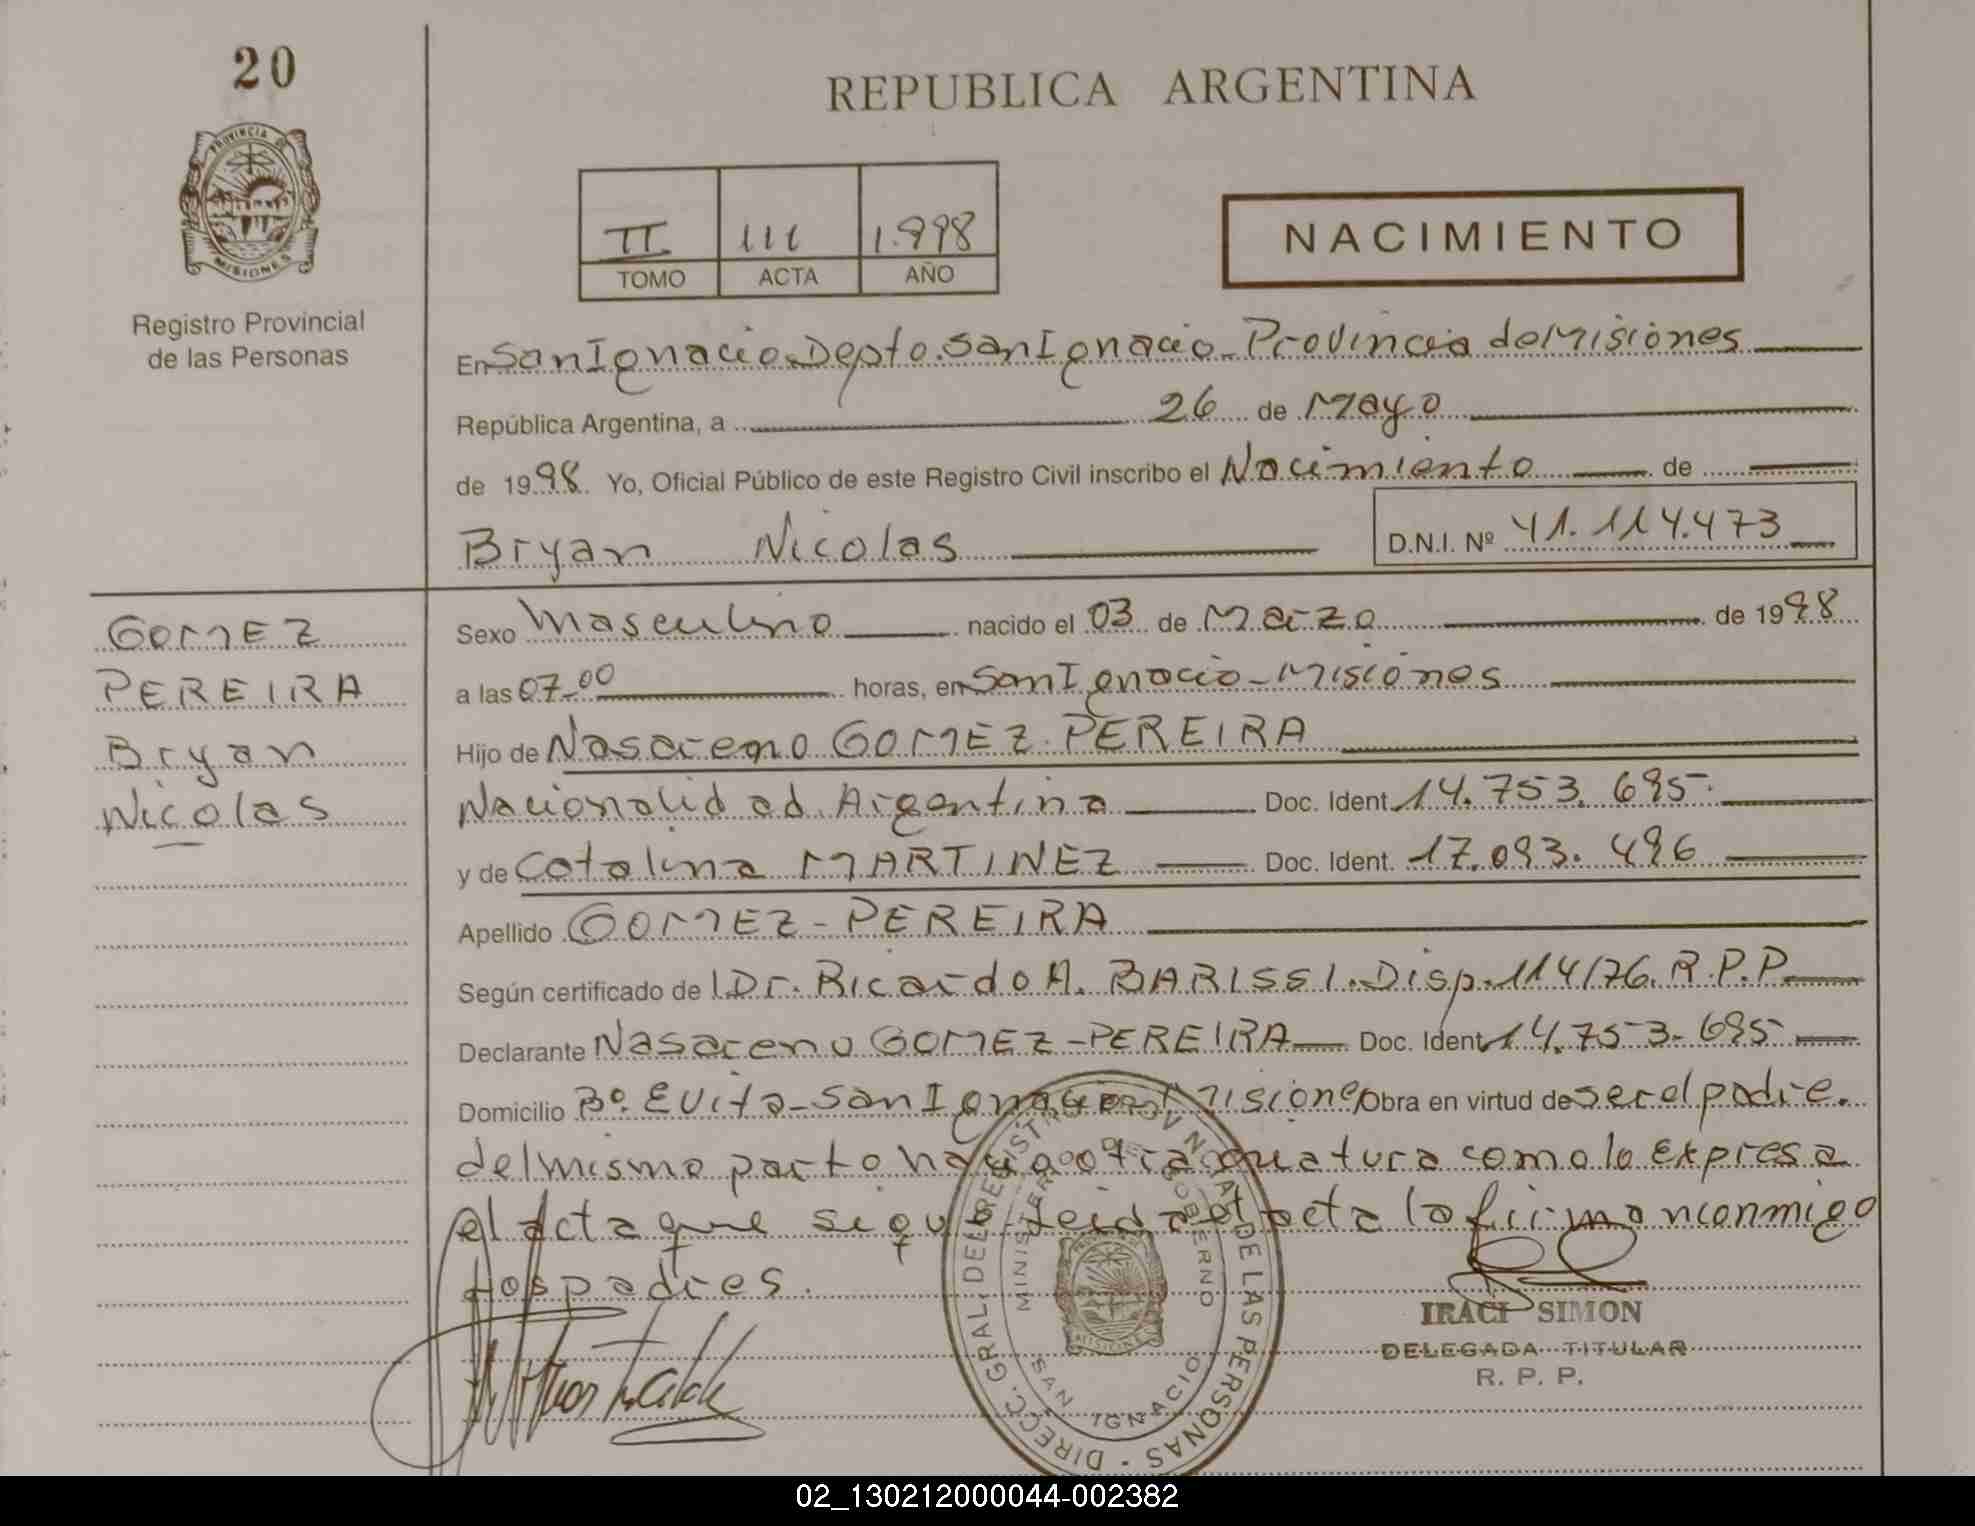 20
REPUBLICA ARGENTINA
PROVINCIA DE
MISIONES
Registro Provincial
de las Personas
II 111 1.998
TOMO ACTA AÑO
NACIMIENTO
En San Ignacio. Depto. San Ignacio - Provincia de Misiones
República Argentina, a 26 de Mayo
de 1998. Yo, Oficial Público de este Registro Civil inscribo el Nacimiento de
Bryan Nicolas D.N.I. Nº 41.114.473
GOMEZ
PEREIRA
Bryan
Nicolas
Sexo Masculino nacido el 03 de Marzo de 1998
a las 07-00 horas, en San Ignacio - Misiones
Hijo de Nasareno GOMEZ-PEREIRA
Nacionalidad Argentina Doc. Ident. 14.753.695
y de Catalina MARTINEZ Doc. Ident. 17.093.496
Apellido GOMEZ-PEREIRA
Según certificado de Dr. Ricardo A. BARISSI. Disp. 114/76. R.P.P.
Declarante Nasareno GOMEZ-PEREIRA Doc. Ident. 14.753.695
Domicilio Bº. Evita - San Ignacio Misiones Obra en virtud de ser el padre.
del mismo parto hay otra criatura como lo expresa
el acta que sigue Leida el acta la firman conmigo
los padres.
DIRECC. GRAL. DEL REGISTRO PROVINCIAL DE LAS PERSONAS
MINISTERIO DE GOBIERNO
MISIONES
SAN IGNACIO
IRACI SIMON
DELEGADA TITULAR
R. P. P.
02_130212000044-002382